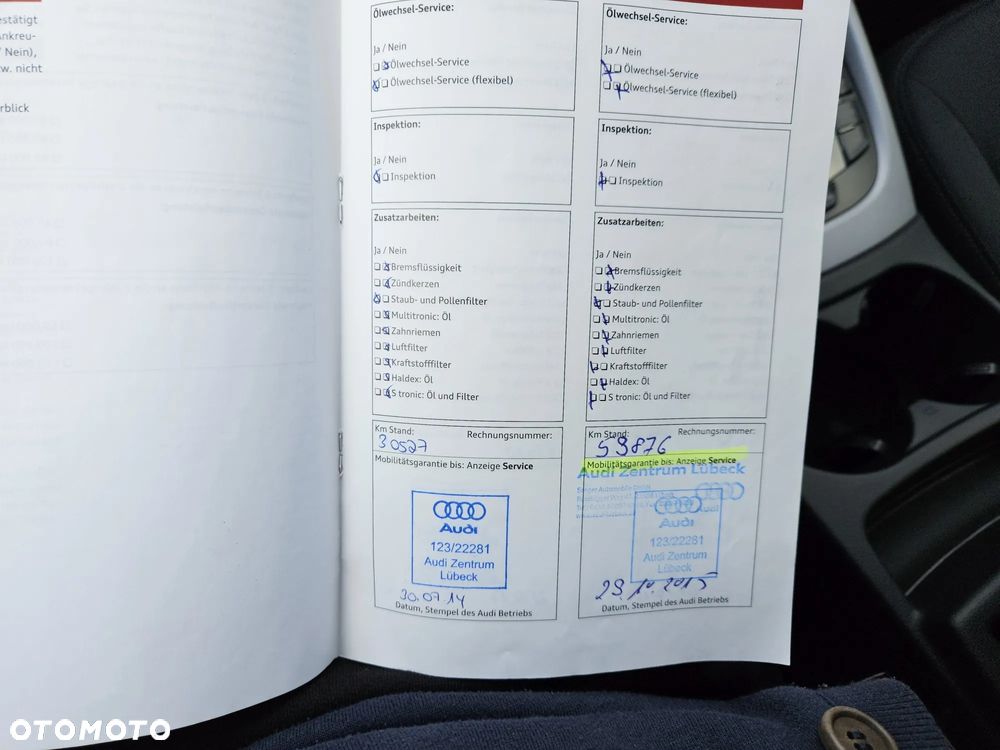 estätigt
Ankreu-
/ Nein),
zw. nicht
erblick
Ölwechsel-Service:
Ja / Nein
Ölwechsel-Service
Ölwechsel-Service (flexibel)
Inspektion:
Ja / Nein
Inspektion
Zusatzarbeiten:
Ja / Nein
Bremsflüssigkeit
Zündkerzen
Staub- und Pollenfilter
Multitronic: Öl
Zahnriemen
Luftfilter
Kraftstofffilter
Haldex: Öl
S tronic: Öl und Filter
Km Stand: Rechnungsnummer:
30527
Mobilitätsgarantie bis: Anzeige Service
Audi
123/22281
Audi Zentrum
Lübeck
30.07.14
Datum, Stempel des Audi Betriebs
Ölwechsel-Service:
Ja / Nein
Ölwechsel-Service
Ölwechsel-Service (flexibel)
Inspektion:
Ja / Nein
Inspektion
Zusatzarbeiten:
Ja / Nein
Bremsflüssigkeit
Zündkerzen
Staub- und Pollenfilter
Multitronic: Öl
Zahnriemen
Luftfilter
Kraftstofffilter
Haldex: Öl
S tronic: Öl und Filter
Km Stand: Rechnungsnummer:
59876
Mobilitätsgarantie bis: Anzeige Service
Audi Zentrum Lübeck
Audi
123/22281
Audi Zentrum
Lübeck
29.10.2015
Datum, Stempel des Audi Betriebs
OTOMOTO